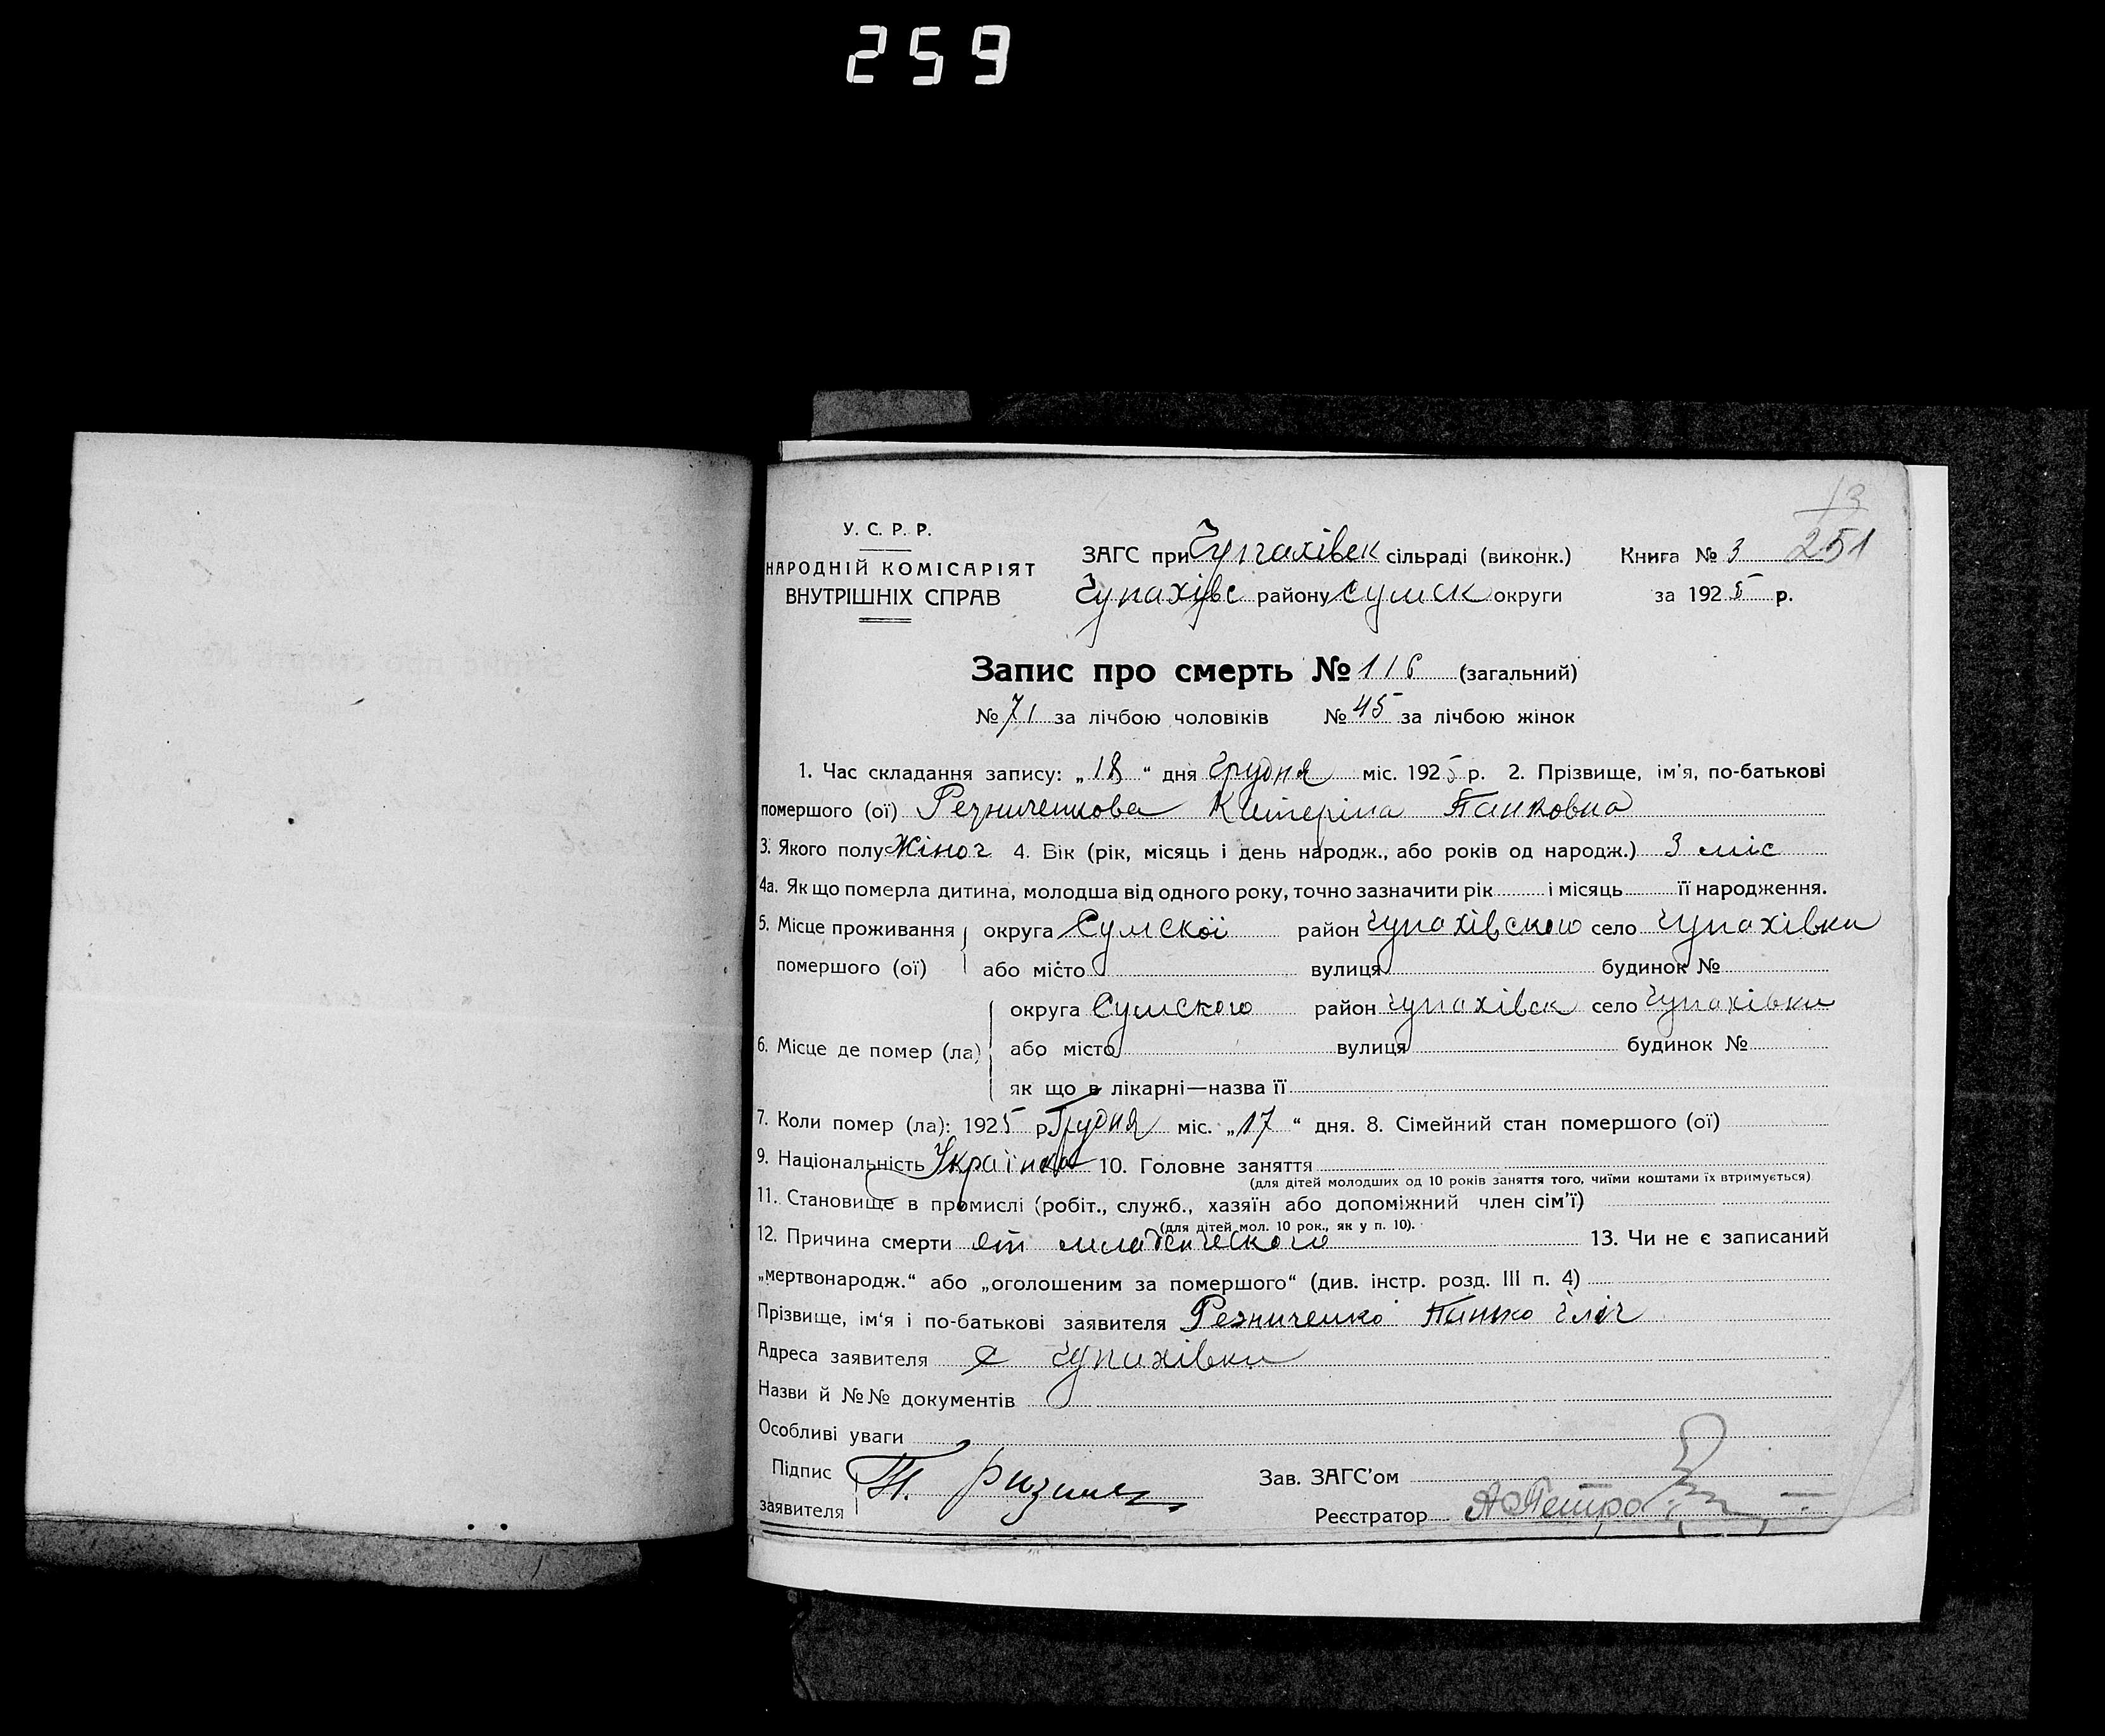 259
13
251
У. С. Р. Р.
НАРОДНІЙ КОМІСАРІЯТ
ВНУТРІШНІХ СПРАВ
ЗАГС при Чупахівск сільраді (виконк.) Книга № 3
Чупахівс району Сумск округи за 1925 р.
Запис про смерть № 116 (загальний)
№ 71 за лічбою чоловіків № 45 за лічбою жінок
1. Час складання запису: „18“ дня Грудня міс. 1925 р. 2. Прізвище, ім'я, по-батькові
помершого (ої) Резниченкова Катеріна Панковна
3. Якого полу Жіноч 4. Вік (рік, місяць і день народж., або років од народж.) 3 міс
4а. Як що померла дитина, молодша від одного року, точно зазначити рік і місяць її народження.
5. Місце проживання округа Сумскої район Чупахівского село Чупахівки
помершого (ої) або місто вулиця будинок №
округа Сумского район Чупахівск село Чупахівки
6. Місце де помер (ла) або місто вулиця будинок №
як що в лікарні—назва її
7. Коли помер (ла): 1925 р. Грудня міс. „17“ дня. 8. Сімейний стан помершого (ої)
9. Національність Українка 10. Головне заняття
(для дітей молодших од 10 років заняття того, чиїми коштами їх втримується)
11. Становище в промислі (робіт., служб., хазяїн або допоміжний член сім'ї)
(для дітей мол. 10 рок., як у п. 10).
12. Причина смерти От младенческого 13. Чи не є записаний
„мертвонародж.“ або „оголошеним за помершого“ (див. інстр. розд. III п. 4)
Прізвище, ім'я і по-батькові заявителя Резниченко Панко Іліч
Адреса заявителя с Чупахівки
Назви й №№ документів
Особливі уваги
Підпис П. Зав. ЗАГС'ом
заявителя Реєстратор